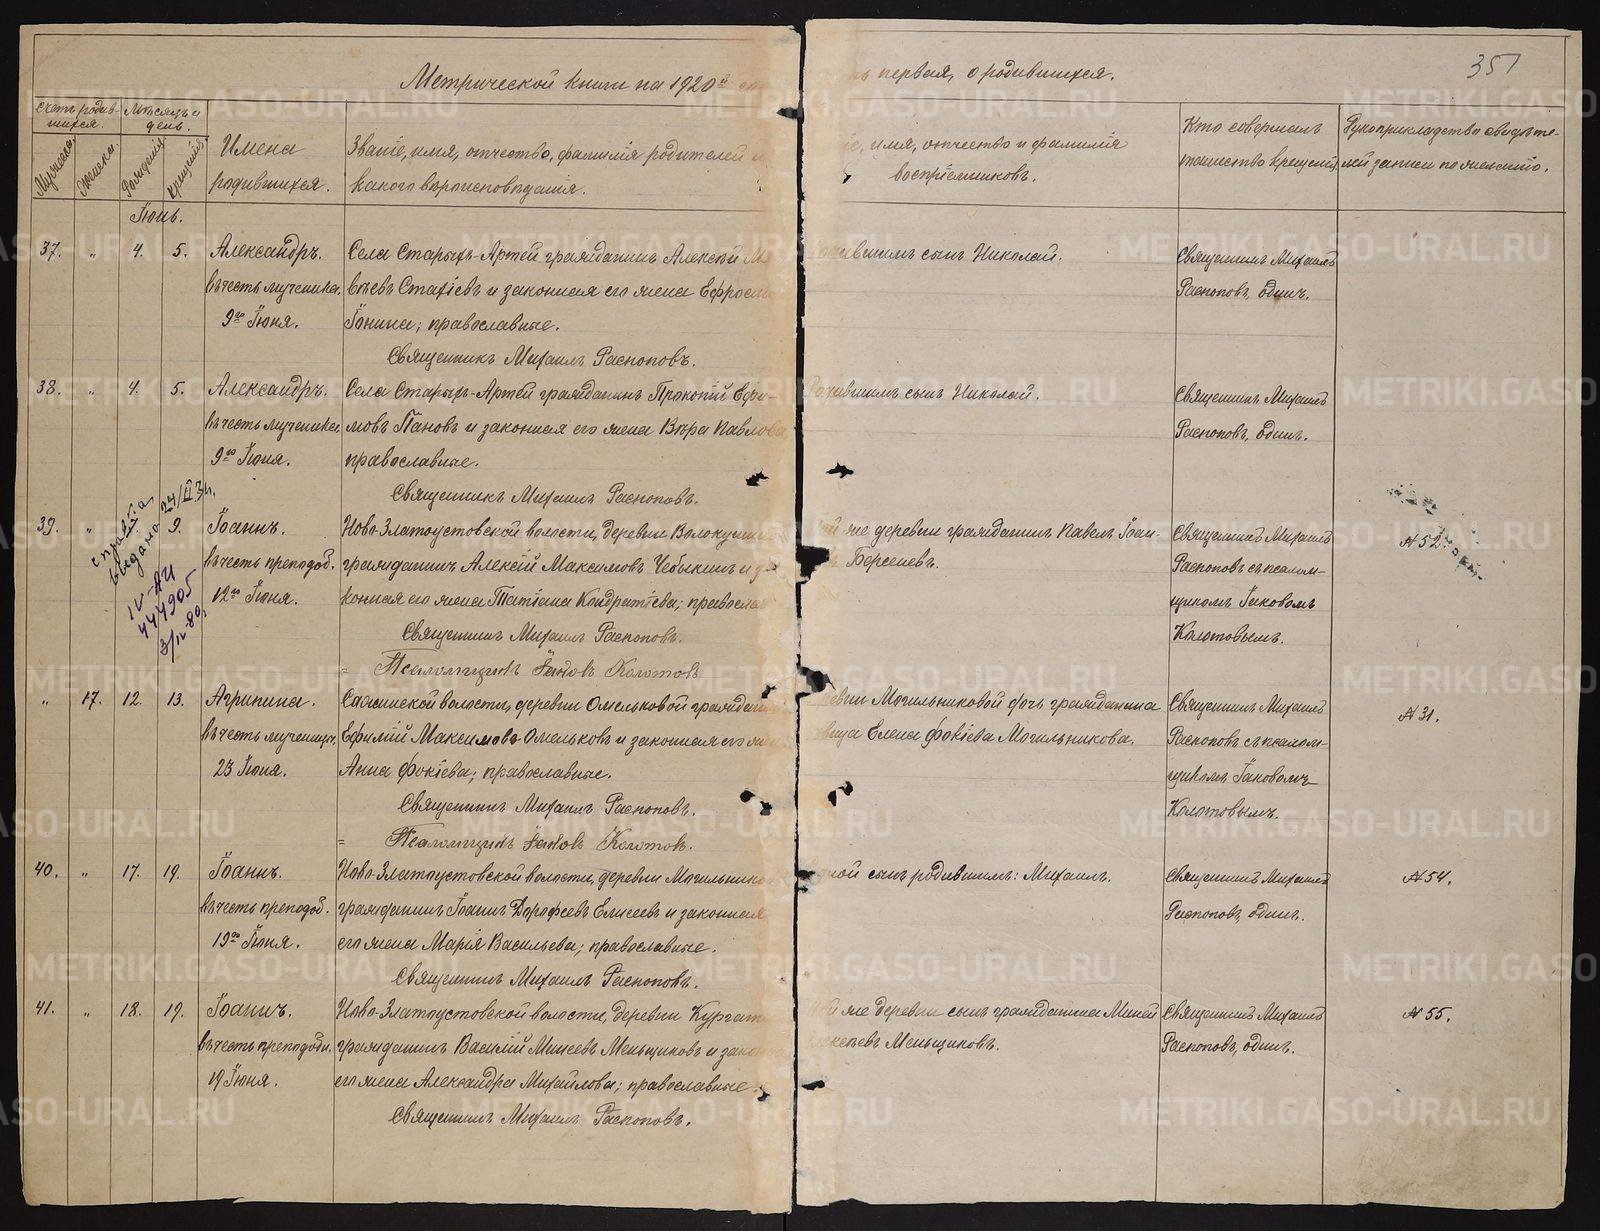 351
Метрической книги на 1920й
первая, о родившихся.
Счетъ родив-
шихся.
Мѣсяцъ и
день.
Мужеска.
Женска.
Рожденія.
Крещенія.
Имена
родившихся.
Званіе, имя, отчество, фамилія родителей и
какого вѣроисповѣданія.
имя, отчество и фамилія
воспріемниковъ.
Кто совершалъ
таинство крещенія
Рукоприкладство свидѣте-
лей записи по желанію.
Іюнь.
37. " 4. 5. Александръ. Села Старыхъ-Артей гражданинъ Алексѣй сынъ Николай. Священникъ Михаилъ
въ честь мученика вѣевъ Стахіевъ и законная его жена Распоповъ, одинъ.
9го Іюня. православные.
Священникъ Михаилъ Распоповъ.
38. " 4. 5. Александръ. Села Старыхъ-Артей гражданинъ Прокопій Ефи- сынъ Николай. Священникъ Михаилъ
въ честь мученика мовъ Пановъ и законная его жена Вѣра Павлова Распоповъ, одинъ.
9го Іюня. православные.
Священникъ Михаилъ Распоповъ.
справка
выдана 24/II
IV-АИ
444905
3/IV-80
39. " 9. Іоаннъ. Ново-Златоустовской волости, деревни же деревни гражданинъ Павелъ Іоан- Священникъ Михаилъ № 52.
въ честь преподоб. гражданинъ Алексій Максимовъ Чебыкинъ и Берсеневъ. Распоповъ съ псалом-
12го Іюня. конная его жена Татіана Кондратіева; щикомъ Іаковомъ
Священникъ Михаилъ Распоповъ. Колотовымъ.
= Псаломщикъ Іаковъ Колотовъ
" 17. 12. 13. Агрипина. волости, деревни Омельковой Могильниковой дочь гражданина Священникъ Михаилъ № 31.
въ честь мученицы, Ефимій Максимовъ Омельковъ и законная его Елена Фокіева Могильникова. Распоповъ съ псалом-
23 Іюня. Анна Фокіева; православные. щикомъ Іаковомъ
Священникъ Михаилъ Распоповъ. Колотовымъ.
= Псаломщикъ Іаковъ Колотовъ.
40. " 17. 19. Іоаннъ. Ново-Златоустовской волости, деревни сынъ родившимъ: Михаилъ. Священникъ Михаилъ № 54.
въ честь преподоб. гражданинъ Іоаннъ Дорофеевъ Елисеевъ и законная Распоповъ, одинъ.
19го Іюня. его жена Марія Васильева; православные.
Священникъ Михаилъ Распоповъ.
41. " 18. 19. Іоаннъ. Ново-Златоустовской волости, деревни же деревни сынъ гражданина Священникъ Михаилъ № 55.
въ честь преподобн. гражданинъ Василій Меньщиковъ и Меньщиковъ. Распоповъ, одинъ.
19 Іюня. его жена Александра Михайлова; православные.
Священникъ Михаилъ Распоповъ.
METRIKI.GASO-URAL.RU